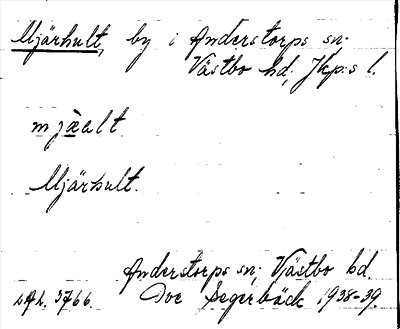 Mjärhult, by i Anderstorps sn;
Västbo hd; Jkp:s l.
mjäalt
Mjärhult.
Anderstorps sn; Västbo hd.
Ove Segerbäck 1938-39.
LAL. 3766.